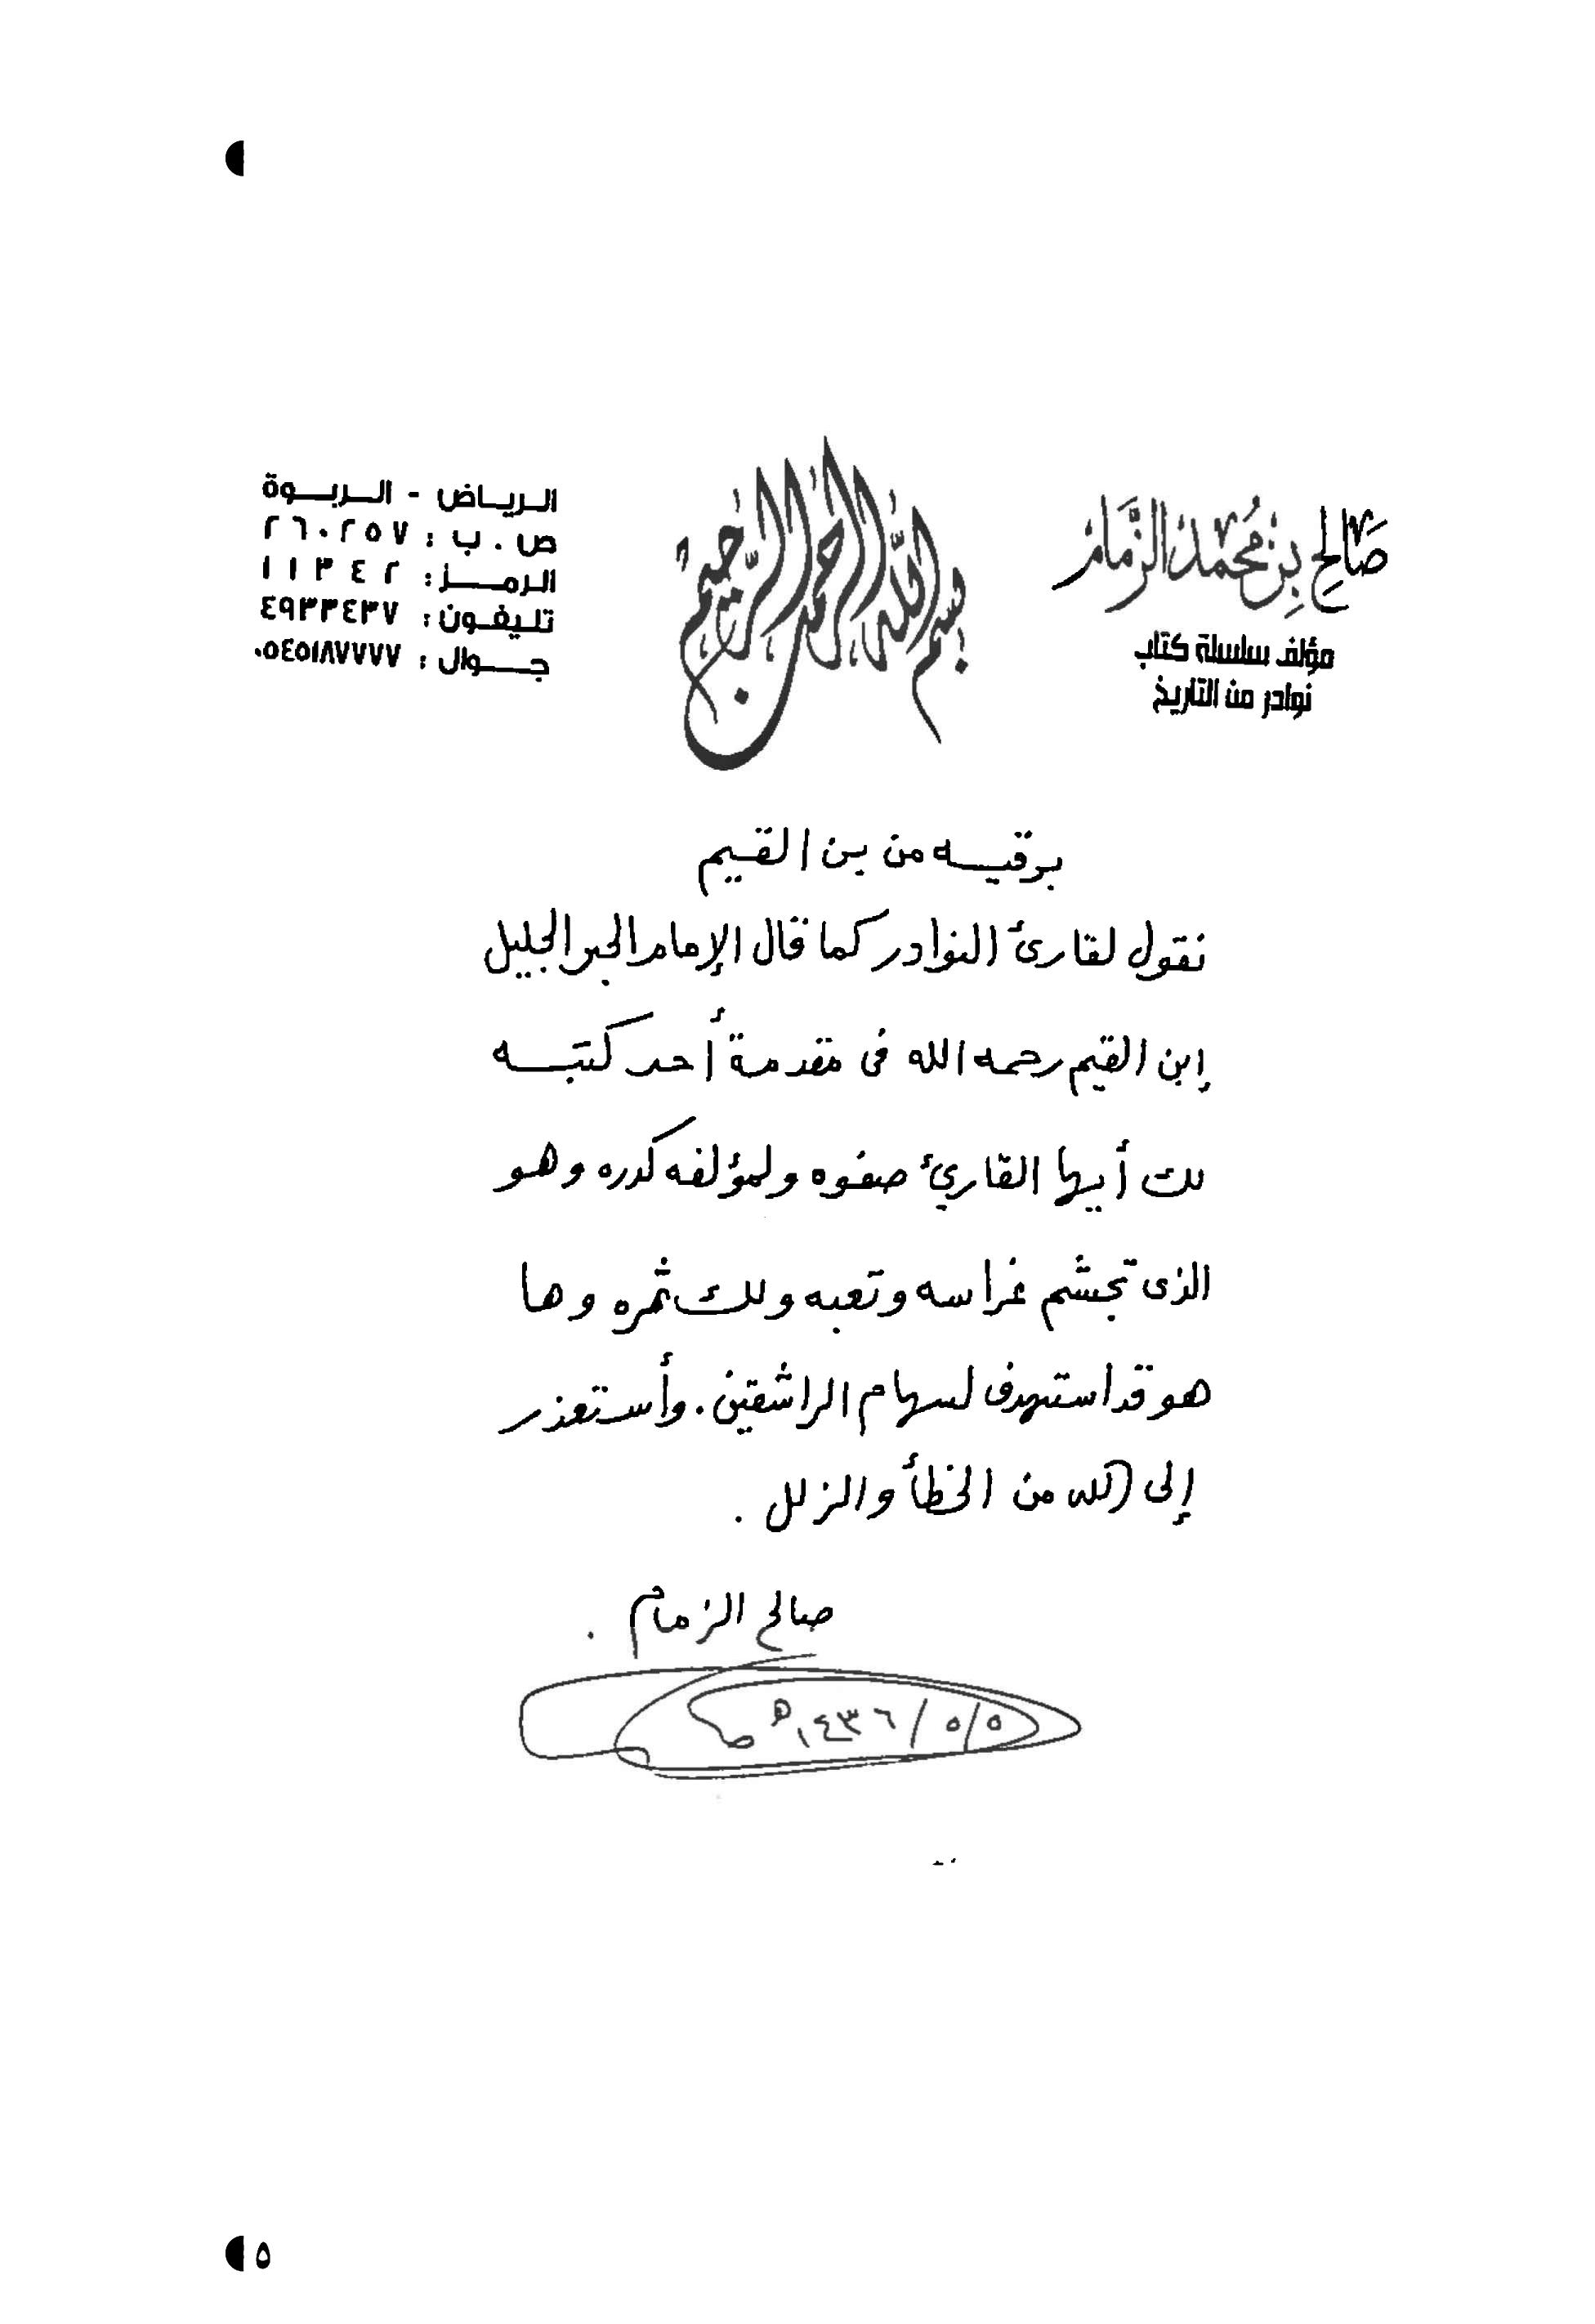 صالح بن محمد الزمام
مؤلف سلسلة كتاب
نوادر من التاريخ
بسم الله الرحمن الرحيم
الرياض - الربوة
ص . ب : ٢٦٠٢٥٧
الرمز : ١١٣٤٢
تليفون : ٤٩٣٣٤٣٧
جوال : ٠٥٤٥١٨٧٧٧٧
برقيه من بن القيم
نقول لقارئ النوادر كما قال الإمام الحبر الجليل
إبن القيم رحمه الله فى مقدمة أحد كتبه
لك أيها القاريء صفوه ولمؤلفه كدره وهو
الذى تجشم غراسه وتعبه ولك ثمره وها
هو قد استهدف لسهام الراشقين . وأستعذر
إلى الله من الخطأ والزلل .
صالح الزمام .
٥/٥/١٤٣٦هـ
٥